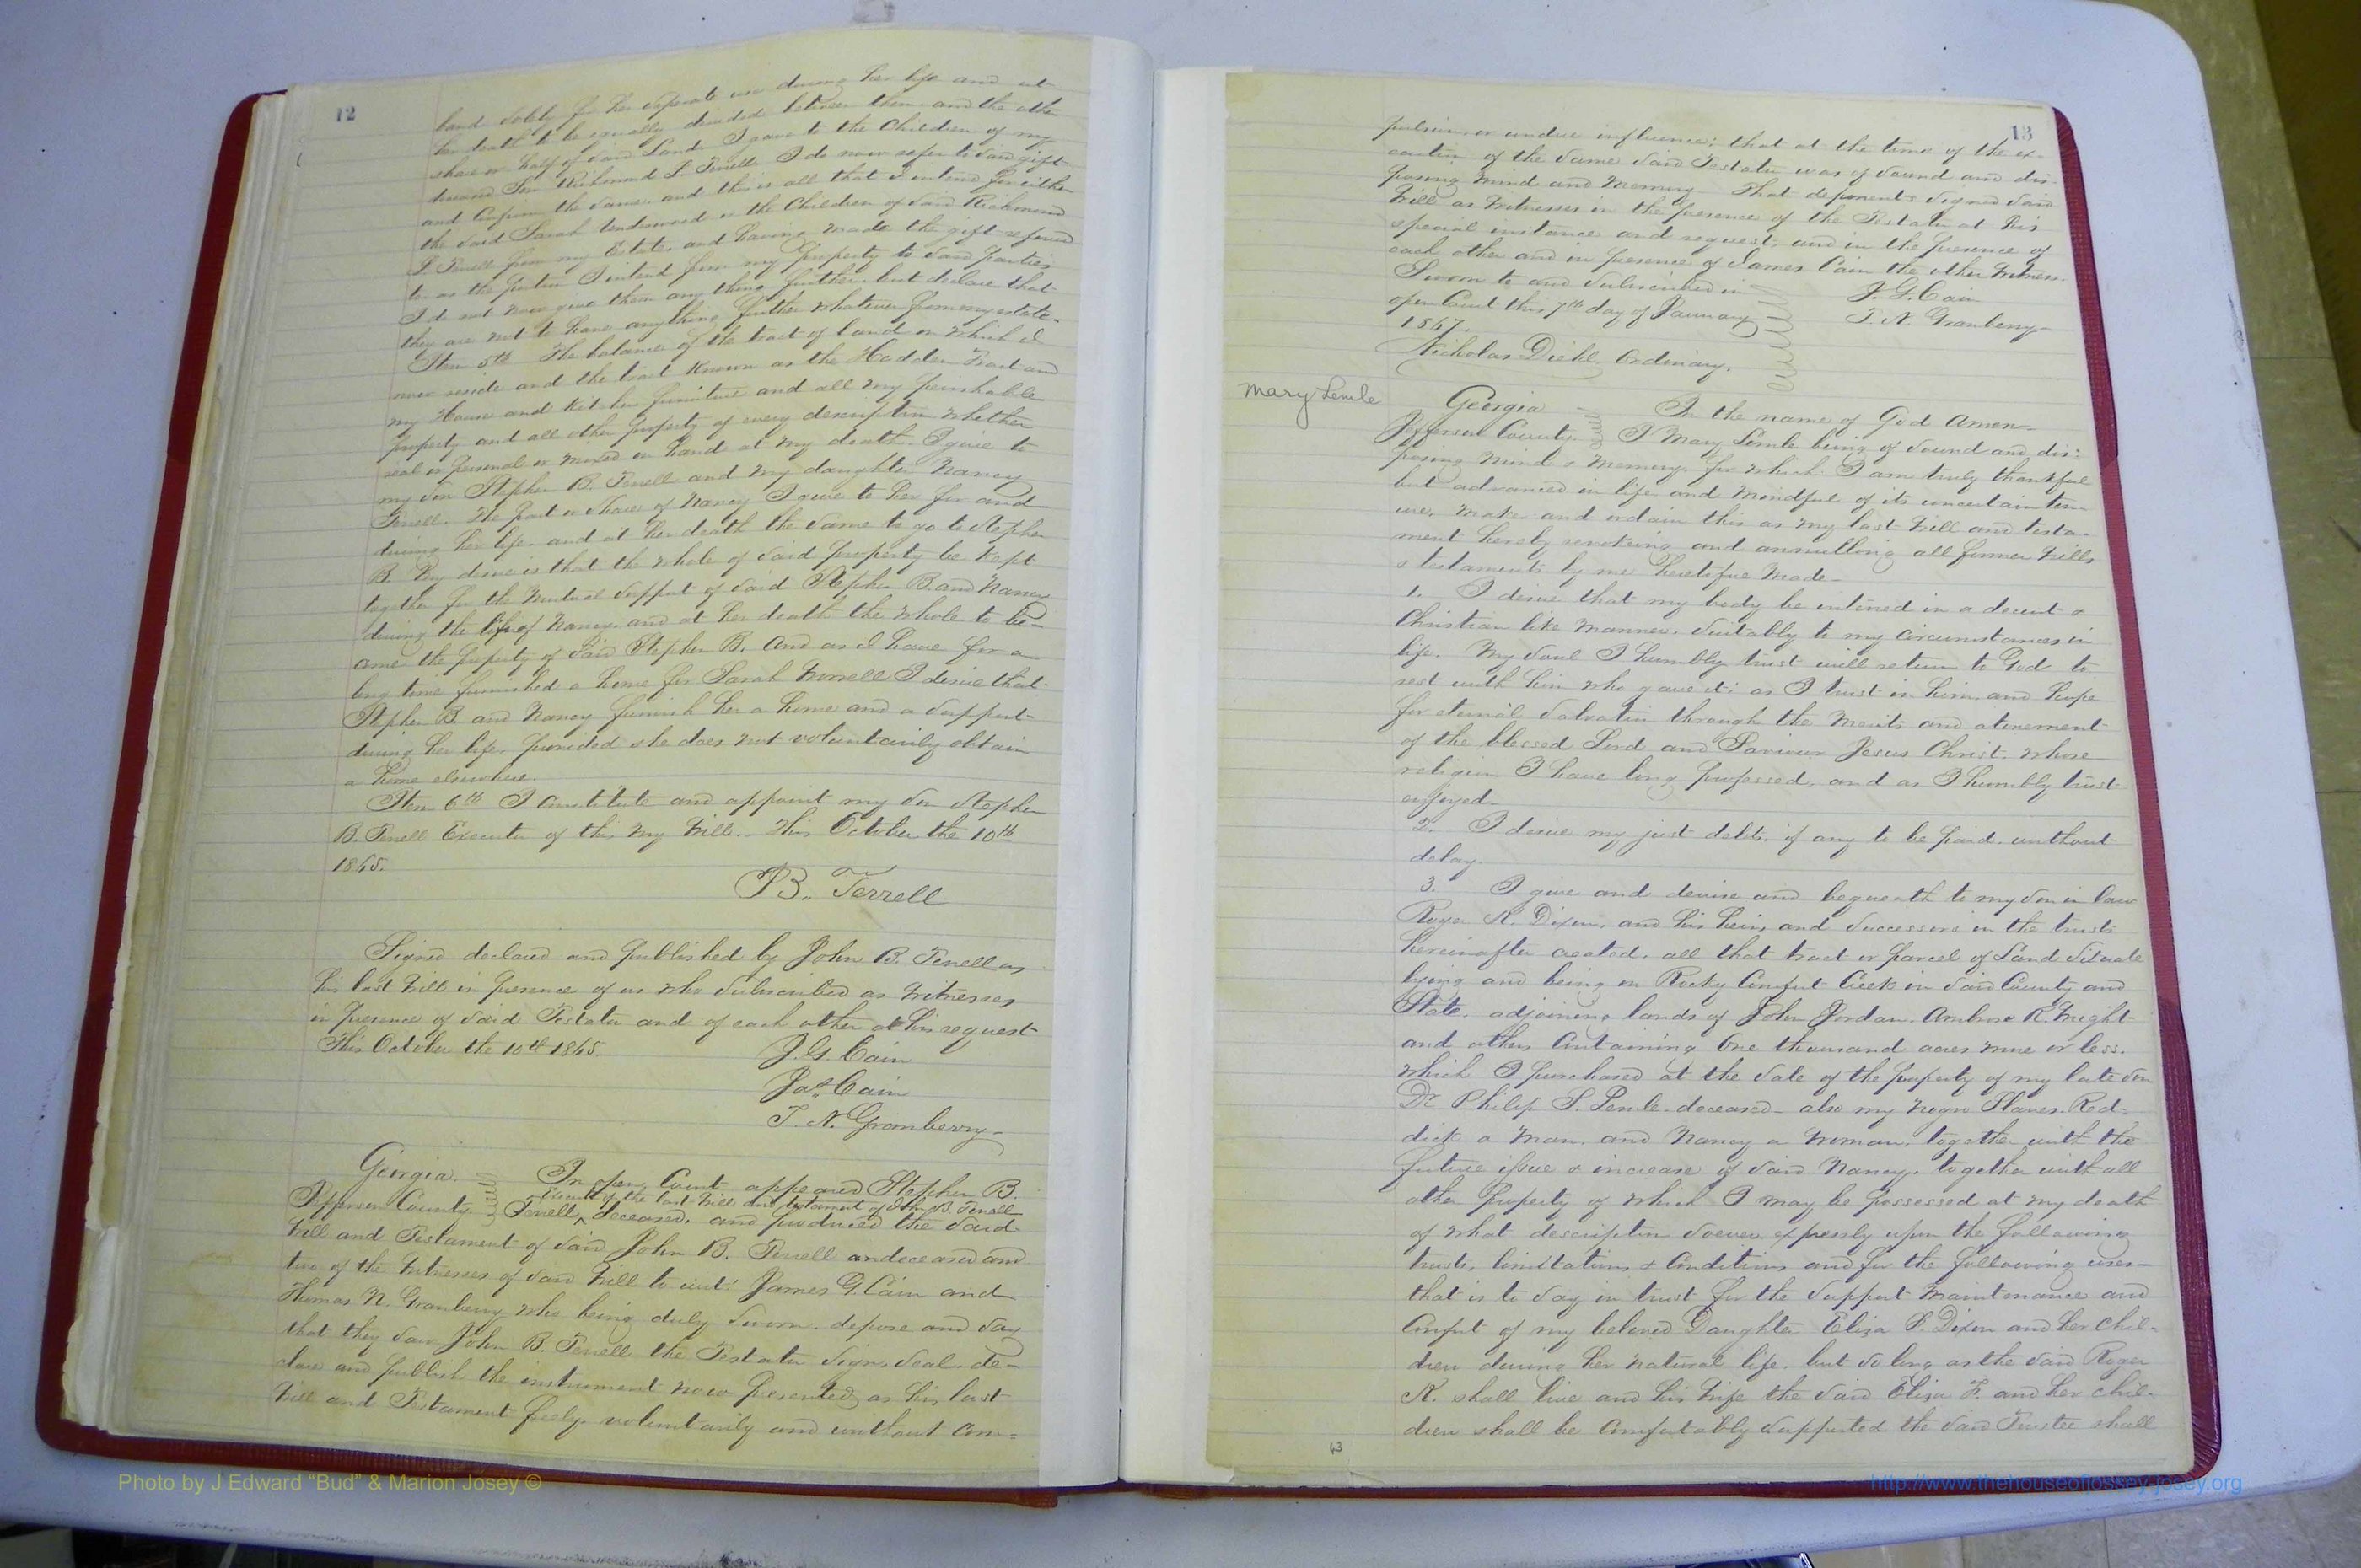 12
band solely for her seperate use during her life and at
her death to be equally divided between them and the other
share or half of said Land I gave to the Children of my
deceased Son Richmond L. Terrell I do now refer to said gift
and confirm the same and this is all that I intend for either
the said Sarah Underwood or the Children of said Richmond
L. Terrell from my Estate, and having made the gift refered
to as the portion I intend from my property to said parties
I do not now give them any thing further, but declare that
they are not to have anything further whatever from my estate.
Item 5th The balance of the tract of land on which I
now reside and the tract known as the Hadden Tract and
my House and Kitchen furniture and all my perishable
property and all other property of every description whether
real or personal or mixed on hand at my death. I give to
my son Stephen B. Terrell and my daughter Nancy
Terrell. The part or share of Nancy I give to her for and
during her life and at her death the same to go to Stephen
B. My desire is that the whole of said property be kept
together for the mutual support of said Stephen B. and Nancy
during the life of Nancy and at her death the whole to be-
come the property of said Stephen B. And as I have for a
long time furnished a home for Sarah I desire that
Stephen B. and Nancy furnish her a home and a support
during her life, provided she does not voluntarily obtain
a home elsewhere.
Item 6th I constitute and appoint my son Stephen
B. Terrell Executor of this my Will. This October the 10th
1865.
B. Terrell
Signed declared and published by John B. Terrell as
his last Will in presence of us who subscribed as Witnesses
in presence of said Testator and of each other at his request
This October the 10th 1865.
J. G. Cain
Jas. Cain
T. N. Granberry
Georgia.
In open Court appeared Stephen B.
Executor of the last Will and testament of John B. Terrell
Jefferson County Terrell, ^ deceased, and produced the said
Will and Testament of said John B. Terrell deceased and
two of the Witnesses of said Will to wit: James G. Cain and
Thomas N. Granberry who being duly sworn, depose and say
that they saw John B. Terrell the Testator sign, seal, de-
clare and publish the instrument now presented as his last
Will and Testament freely, voluntarily and without com=
13
pulsion or undue influence; that at the time of the ex-
ecution of the same said Testator was of sound and dis-
posing mind and memory That deponents signed said
Will as Witnesses in the presence of the Testator at his
special instance and request, and in the presence of
each other and in presence of James Cain the other Witness.
Sworn to and subscribed in
J. G. Cain
open Court this 7th day of January
T. N. Granberry
1867.
Nicholas Diehl Ordinary.
Mary Lemle
Georgia
In the name of God Amen-
Jefferson County. I Mary Lemle being of sound and dis:
posing mind & memory, for which I am truly thankful
but advanced in life and mindful of its uncertain ten-
ure, make and ordain this as my last Will and testa-
ment hereby revokeing and annulling all former Wills
& testaments by me heretofore made-
1. I desire that my body be intered in a decent &
Christian like manner, suitably to my circumstances in
life. My soul I humbly trust will return to God to
rest with him who gave it: as I trust in him, and hope
for eternal salvation through the merits and atonement
of the blessed Lord and Saviour Jesus Christ, whose
religion I have long professed, and as I humbly trust
enjoyed-
2. I desire my just debts, if any to be paid, without
delay.
3. I give and devise and bequeath to my son in law
Roger K. Dixon, and his heirs and successors in the trusts
hereinafter created, all that tract or parcel of Land situate
lying and being on Rocky Comfort Creek in said County and
State, adjoining lands of John Jordan, Ambrose R. Wright
and others Containing One thousand acres more or less.
which I purchased at the sale of the property of my late son
Dr Philip S. Lemle deceased- also my negro Slaves Red-
dick a man, and Nancy a Woman, together with the
future issue & increase of said Nancy, together with all
other property of which I may be possessed at my death
of what description soever, expressly upon the following
trusts, limitations & Conditions and for the following uses-
that is to say in trust for the support Maintenance and
Comfort of my beloved Daughter Eliza S. Dixon and her chil-
dren during her natural life, but so long as the said Roger
K. shall live and his wife the said Eliza F. and her chil-
dren shall be Comfortably supported the said Trustee shall
43
Photo by J Edward “Bud” & Marion Josey ©
http://www.thehouseofjossey-josey.org